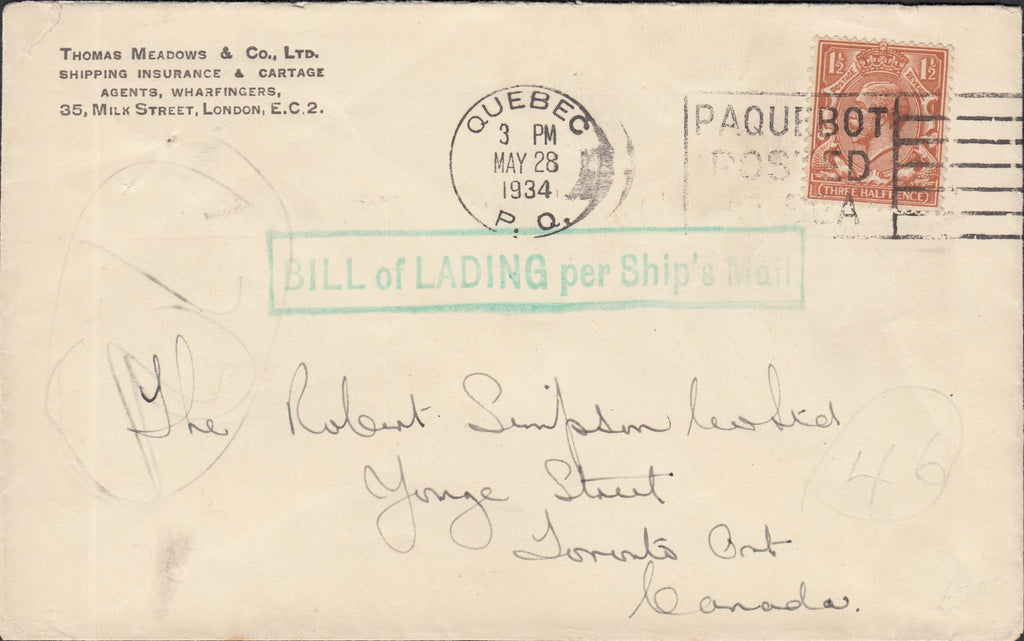 THOMAS MEADOWS & CO., LTD.
SHIPPING INSURANCE & CARTAGE
AGENTS, WHARFINGERS,
35, MILK STREET, LONDON, E.C.2.
QUEBEC
3 PM
MAY 28
1934
P. Q.
PAQUEBOT
POSTED
SEA
1½ 1½
POSTAGE REVENUE
THREE HALFPENCE
BILL of LADING per Ship's Mail
The Robert Simpson Co Ltd
Yonge Street
Toronto Ont
Canada.
46